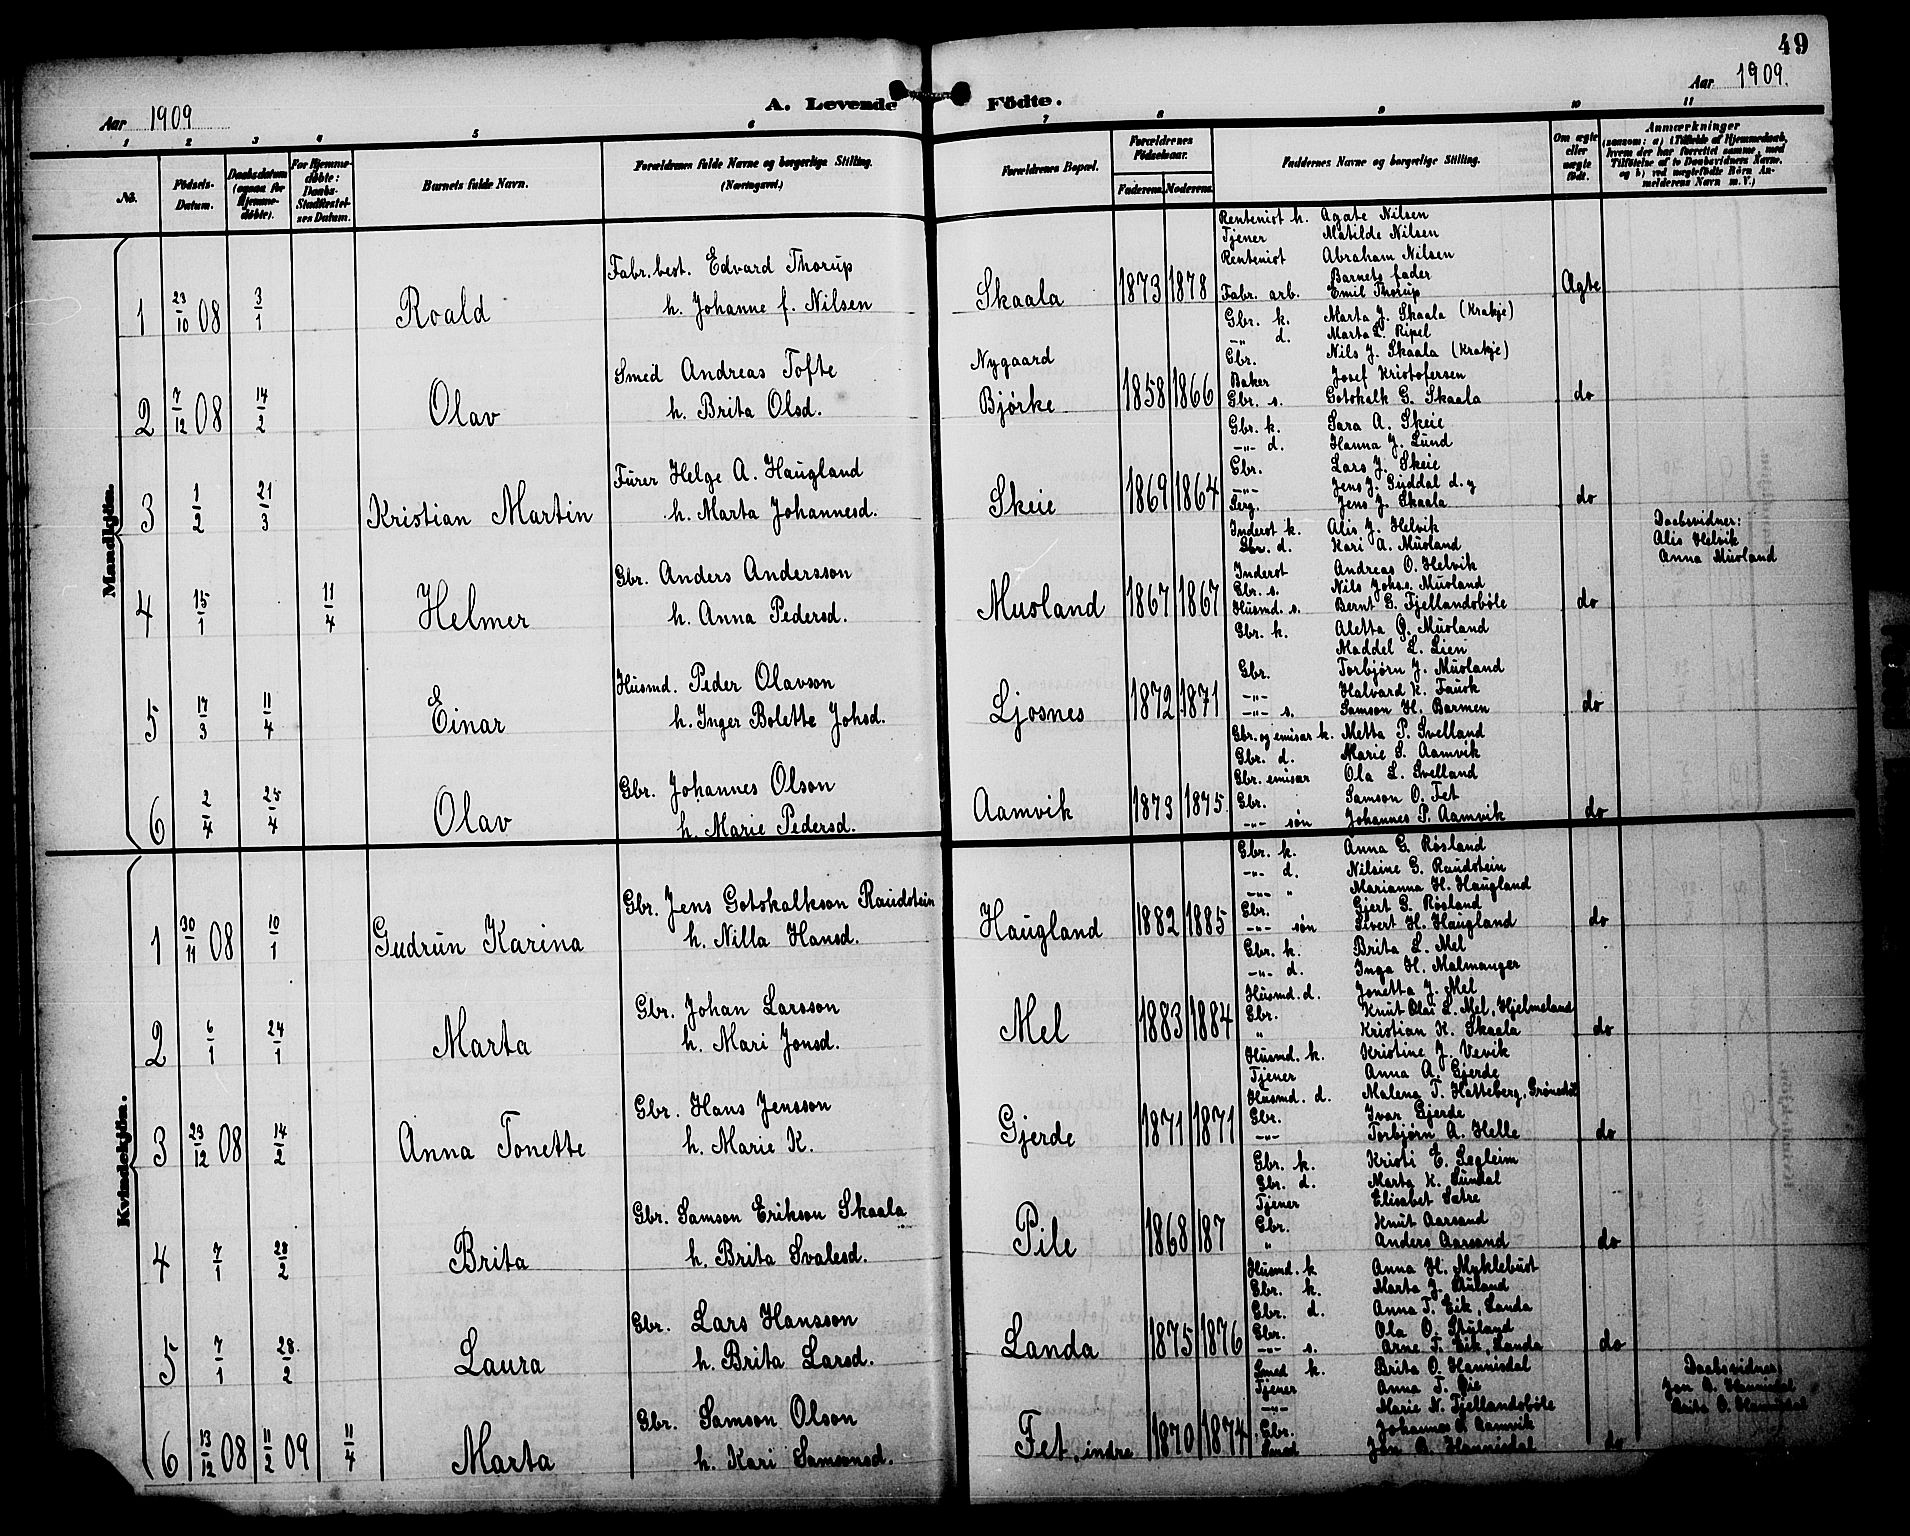 49
Aar 1909
Aar 1909.
A. Levende Födte.
1 2 3 4 5 6 7 8 9 10 11
No. Födsels-Datum. Daabsdatum (ogsaa for Hjemmedöbte). For Hjemmedöbte: Daabs-Stadfæstelses Datum. Barnets fulde Navn. Forældrenes fulde Navne og borgerlige Stilling. (Næringsvei.) Forældrenes Bopæl. Forældrenes Födselsaar. Faddernes Navne og borgerlige Stilling. Om ægte eller uægte födt. Anmærkninger
Faderens. Moderens.
Mandkjön.
1 23/10 08 3/1 Roald
Fabr. best. Edvard Thorup
h. Johanne f. Nilsen
Skaala 1873 1878 Ægte
Rentenist h. Agate Nilsen
Tjener Matilde Nilsen
Rentenist Abraham Nilsen
Barnets fader
Fabr. arb. Emil Thorup
2 7/12 08 14/2 Olav
Smed Andreas Tofte
h. Brita Olsd.
Nygaard
Bjørke 1858 1866 do
Gbr. k. Marta J. Skaala (Krakje)
-"- d. Marta L. Ripel
Gbr. Nils J. Skaala (Krakje)
Baker Josef Kristofersen
Gbr. s. Gotskalk G. Skaala
3 1/2 21/3 Kristian Martin
Furer Helge A. Haugland
h. Marta Johannesd.
Skeie 1869 1864 do
Gbr. k. Sara A. Skeie
-"- d. Hanna J. Lund
Gbr. Lars J. Skeie
-"- Jens J. Guddal d. y
Serg. Jens J. Skaala
4 15/1 11/4 Helmer
Gbr. Anders Andersson
h. Anna Pedersd.
Musland 1867 1867 do
Inderst k. Alis J. Helvik
Gbr. d. Kari A. Musland
Inderst Andreas O. Helvik
Gbr. s. Nils Johs. Musland
Husmd. s. Bernt G. Fjellandsbøle
Daabsvidner:
Alis Helvik
Anna Musland
5 17/3 11/4 Einar
Husmd. Peder Olavson
h. Inger Bolette Johsd.
Ljosnes 1872 1871 do
Gbr. k. Aletta Musland
Maddel L. Lien
Gbr. Torbjørn J. Musland
-"- Halvard K. Fausk
-"- s. Samson H. Barmen
6 2/4 25/4 Olav
Gbr. Johannes Olson
h. Marie Pedersd.
Aamvik 1873 1875 do
Gbr. og emisar k. Metta P. Svelland
Gbr. d. Marie S. Aamvik
Gbr. emisar Ola L. Svelland
Gbr. Samson O. Fet
-"- søn Johannes P. Aamvik
Kvindekjön.
1 30/11 08 10/1 Gudrun Karina
Gbr. Jens Gotskalkson Raudstein
h. Nilla Hansd.
Haugland 1882 1885 do
Gbr. k. Anna G. Røsland
-"- d. Nilsine G. Raudstein
-"- " Marianna H. Haugland
Gbr. Gjert G. Røsland
-"- søn Sivert H. Haugland
2 6/1 24/1 Marta
Gbr. Johan Larsson
h. Mari Jonsd.
Mel 1883 1884 do
Gbr. k. Brita L. Mel
-"- d. Inga H. Malmanger
Husmd. d. Jonetta J. Mel
Gbr. Knut Olai L. Mel, Hjelmeland
" Kristian K. Skaala
3 23/12 08 14/2 Anna Tonette
Gbr. Hans Jensson
h. Marie K.
Gjerde 1871 1871 do
Husmd. k. Kristine J. Vevik
Tjener Anna A. Gjerde
Husmd. d. Malena T. Hatteberg,
Gbr. Ivar Gjerde
-"- Torbjørn A. Helle
4 7/1 28/2 Brita
Gbr. Samson Erikson Skaala
h. Brita Svalesd.
Pile 1868 187 do
Gbr. k. Kristi E. Sagleim
Gbr. d. Marta K. Sundal
Tjener Elisabet Sætre
Gbr. Knut Aarsand
" Anders Aarsand
5 7/1 28/2 Laura
Gbr. Lars Hansson
h. Brita Larsd.
Landa 1875 1876 do
Husmd. k Anna H. Myklebust
Gbr. k. Marta J. Stuland
Gbr. d. Anna T. Eik, Landa
Gbr. Ola O. Stuland
-"- s. Arne T. Eik, Landa
6 13/12 08 11/2 09 11/4 Marta
Gbr. Samson Olson
h. Kari Samsonsd.
Fet, indre 1870 1874 do
Smed k. Brita O. Hannisdal
Tjener Anna T.
-"- Marie N. Fjellandsbøle
Gbr. Johannes Aamvik
Smed Jon Hannisdal
Daabsvidner
Jon Hannisdal
Brita O. Hannisdal